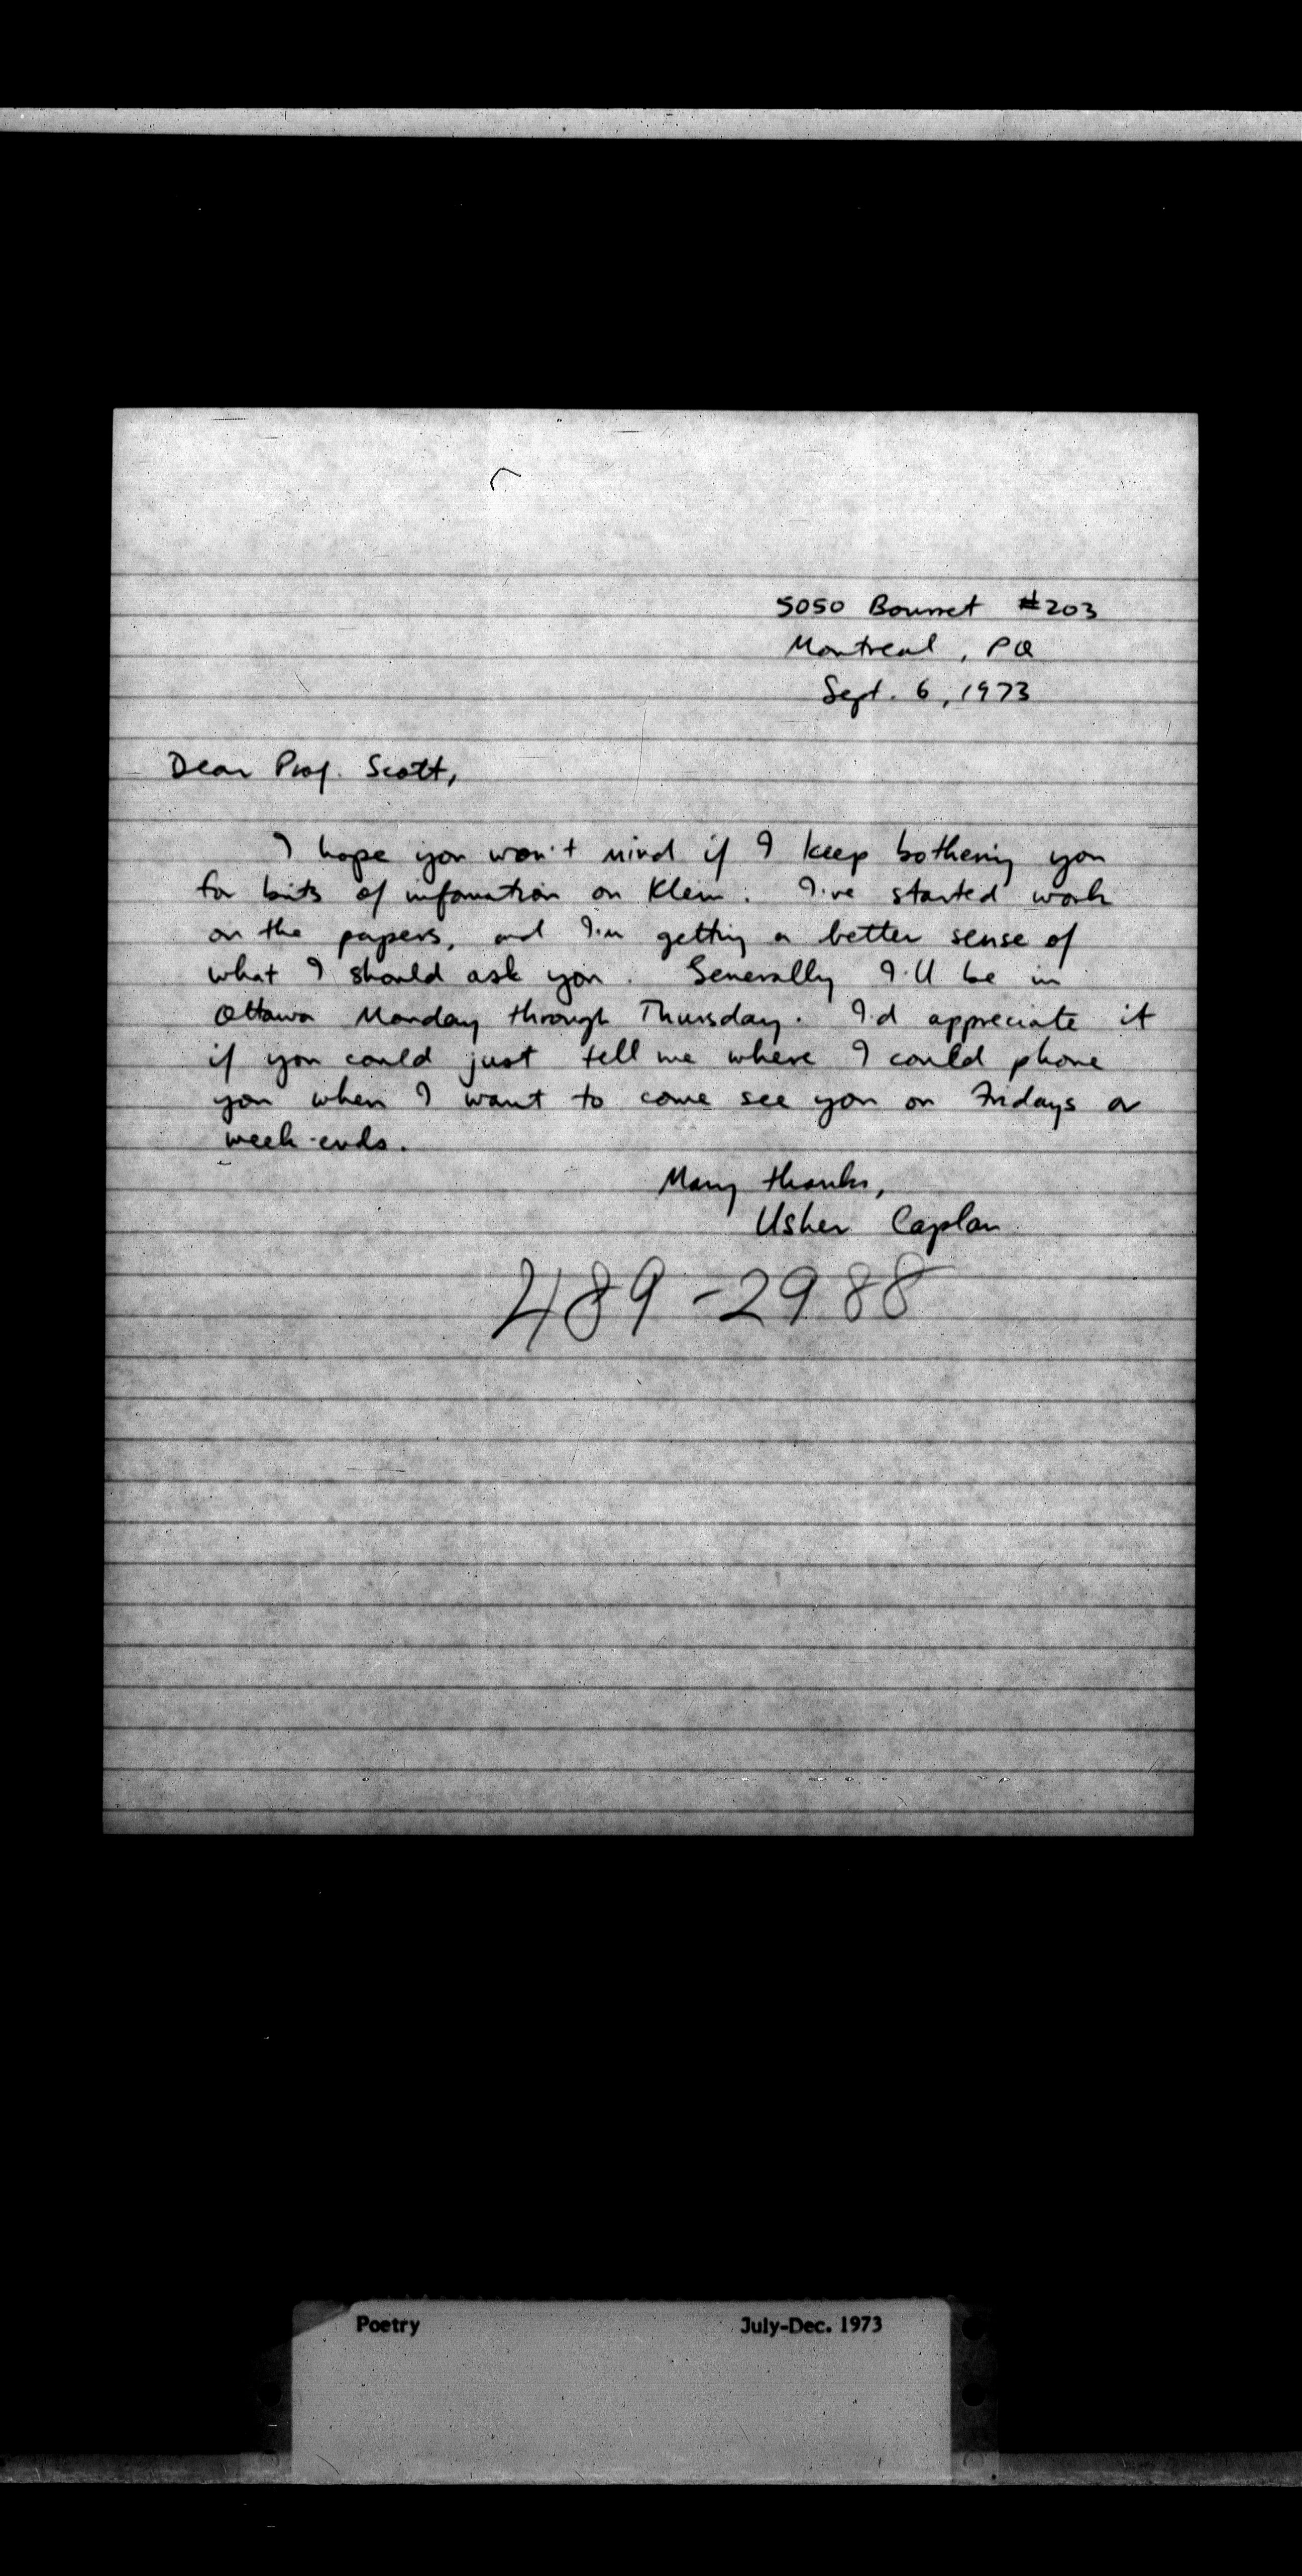 5050 Bourret #203
Montreal, PQ
Sept. 6, 1973
Dear Prof. Scott,
I hope you won't mind if I keep bothering you
for bits of information on Klein. I've started work
on the papers, and I'm getting a better sense of
what I should ask you. Generally I'll be in
Ottawa Monday through Thursday. I'd appreciate it
if you could just tell me where I could phone
you when I want to come see you on Fridays or
week-ends.
Many thanks,
Usher Caplan
489-2988
Poetry July-Dec. 1973